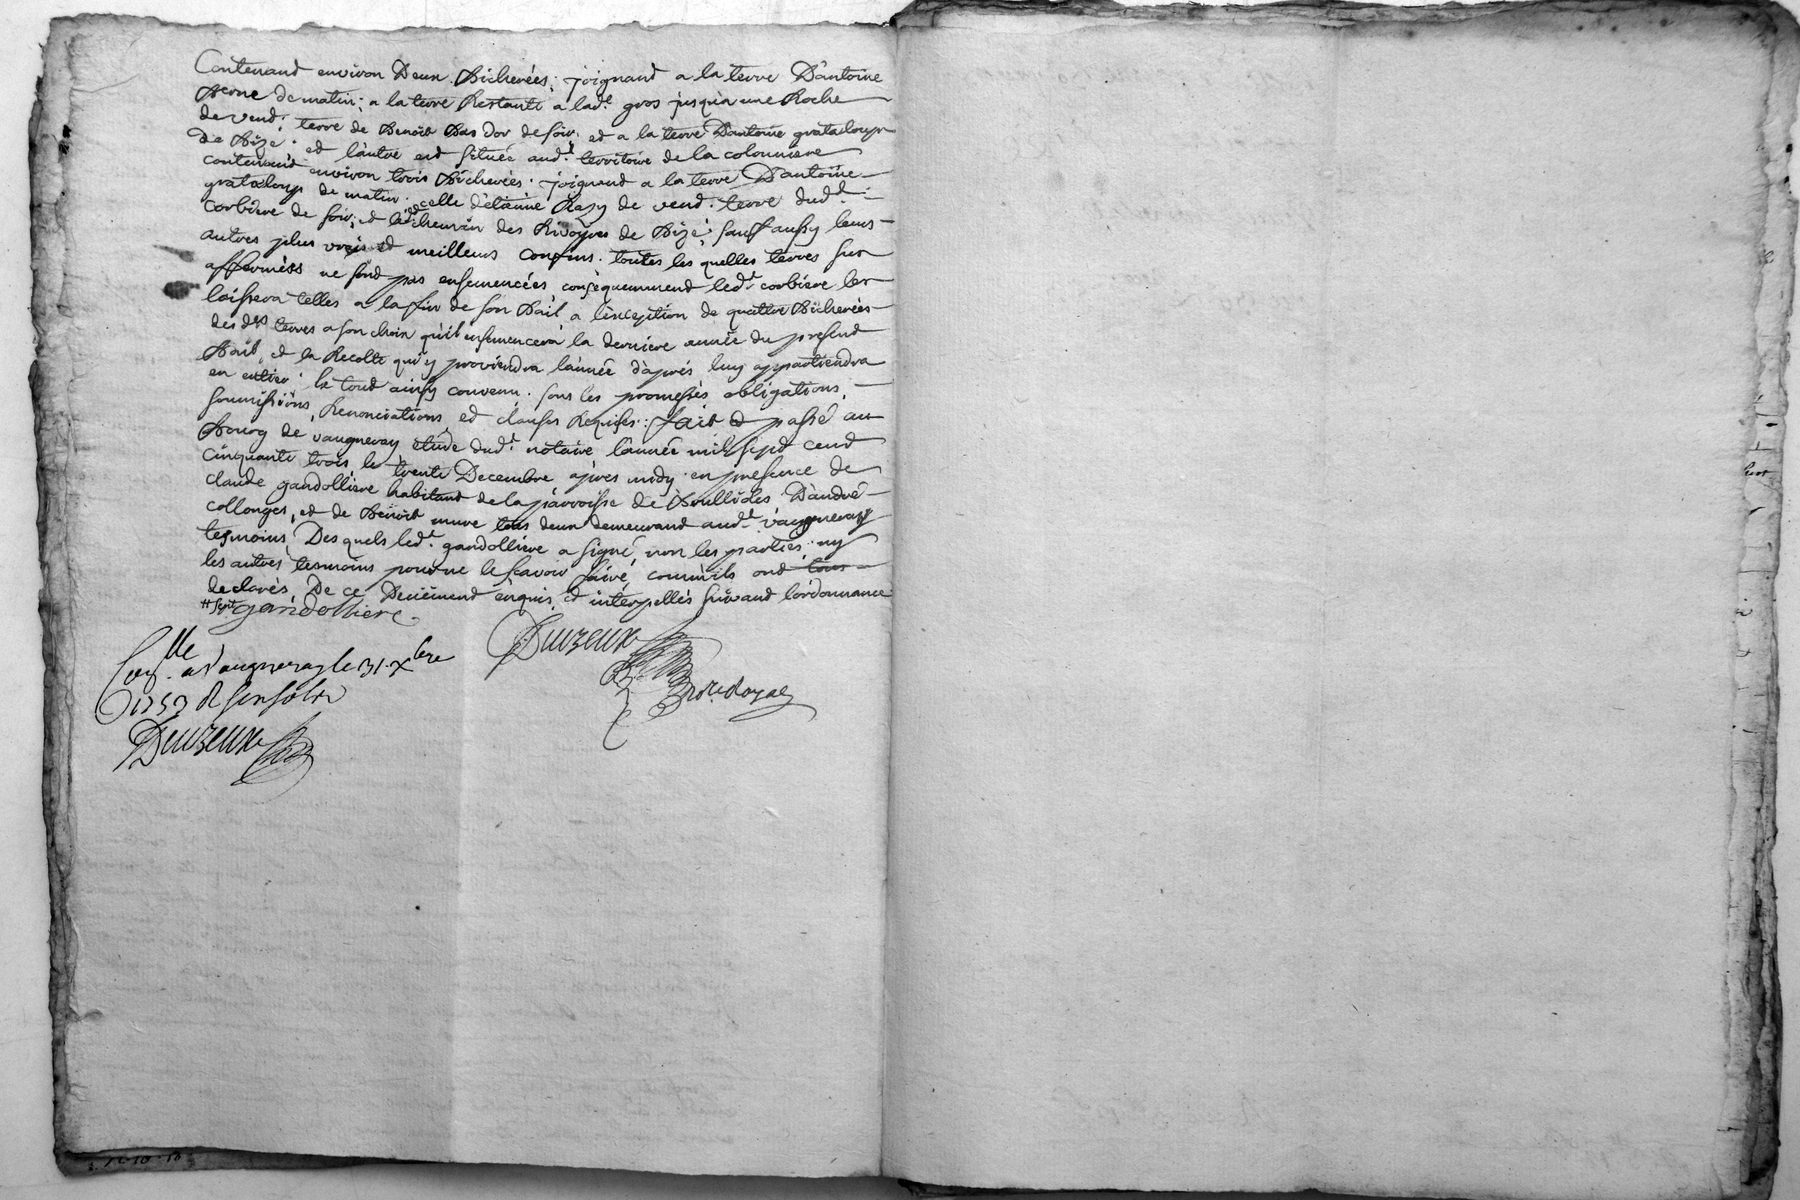 Contenand environ Deux Bicherées; joignand a la terre D'antoine
de matin; a la terre Restante a lad.e gros jusqu'a une Roche
de vend; terre de Benoît Bas Dor de soir; et a la terre D'antoine grataloup
De Bize; et l'autre est située aud.t territoire de la colonniere
contenand environ trois Bicherées; joignand a la terre D'antoine
grataloup de matin; celle d'etienne Razy de vend; terre dud.t
corbiere de soir; et le chemin des Rivoyres de Bize; sauf aussy leurs
autres plus vrais et meilleurs confins. toutes les quelles terres sus
affermées ne sont pas ensemencées conséquemment led.t corbiere les
laissera telles a la fin de son Bail a l'exception de quattre Bicherées
des d.es terres a son choix qu'il ensemencera la derniere année du present
Bail, et la Recolte qui y proviendra l'année d'après luy appartiendra
en entier; le tout ainsy convenu. sous les promesses obligations,
soumissions, Renonciations et clauses Requises; fait et passé au
Bourg de vaugneray étude dud.t notaire l'année mil sept cent
cinquante trois le trente Decembre apres midy en presence de
claude gandolliere habitant de la parroisse de Brullioles D'andré
collonges, et de Benoît mure tous deux demeurand aud.t vaugneray
tesmoins, Des quels led.t gandolliere a signé, non les parties ny
les autres tesmoins pour ne le scavoir faire, comm'ils ont tous
declarés, De ce Deüement enquis et interpellés suivand l'ordonnance
gandolliere
Deuzeux
Not.re Royal
a Vaugneray le 31 Xbre
1753 R six sols
Deuzeux